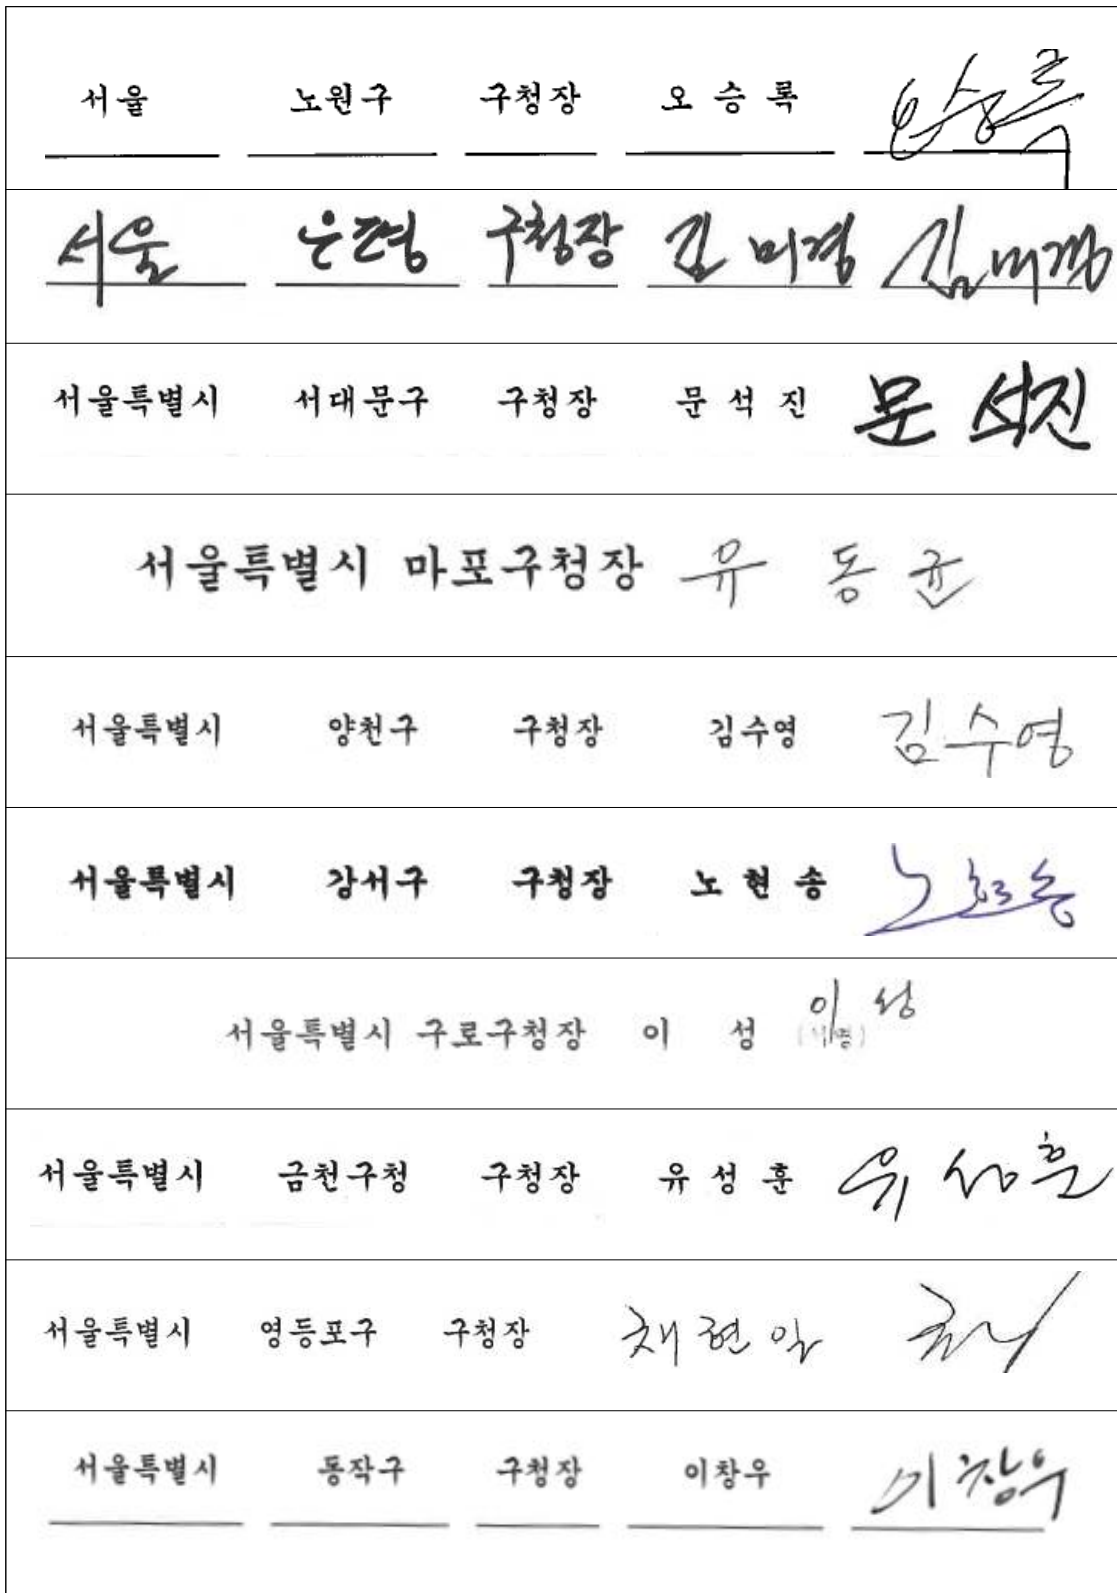 서울 노원구 구청장 오 승 록 오승록
서울 은평 구청장 김 미경 김미경
서울특별시 서대문구 구청장 문 석 진 문 석진
서울특별시 마포구청장 유 동 균
서울특별시 양천구 구청장 김수영 김수영
서울특별시 강서구 구청장 노 현 송 노현송
서울특별시 구로구청장 이 성 (서명) 이 성
서울특별시 금천구청 구청장 유 성 훈 유 성훈
서울특별시 영등포구 구청장 채현일
서울특별시 동작구 구청장 이창우 이창우